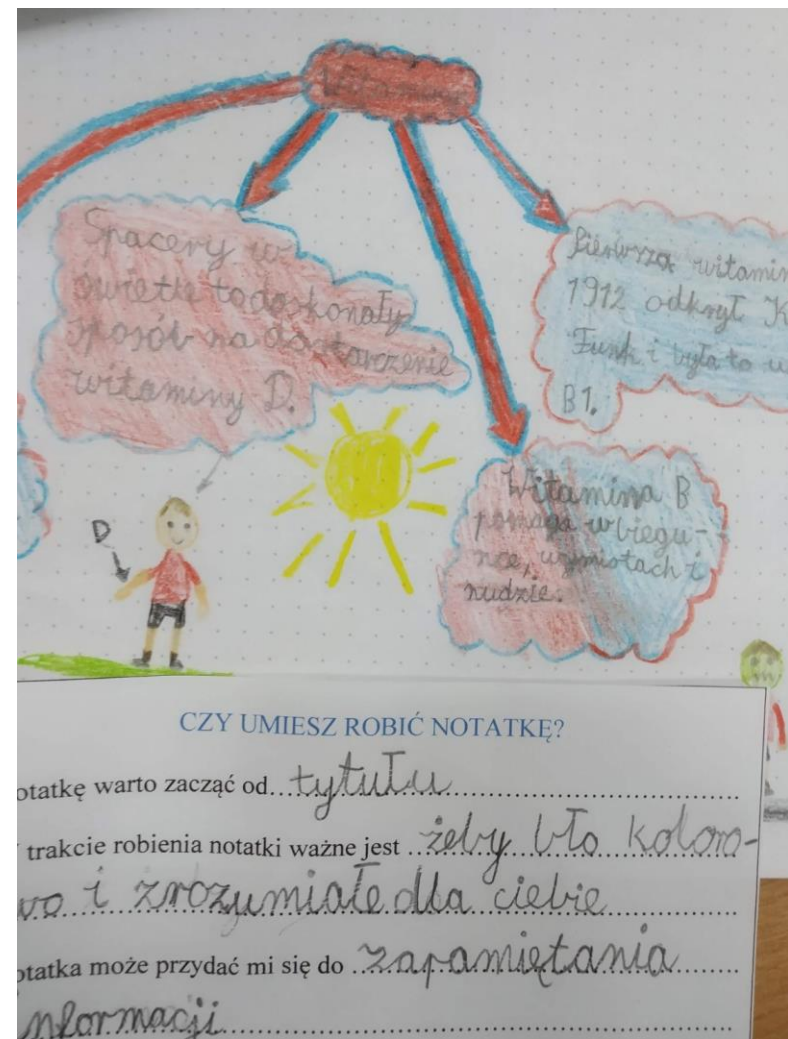 Witaminy
Spacery w
świetle to doskonały
sposób na dostarczenie
witaminy D.
Pierwszą witamin
1912 odkrył K
Funk i była to w
B1.
Witamina B
pomaga w biegu-
nce, wymiotach i
nudzie.
D
CZY UMIESZ ROBIĆ NOTATKĘ?
otatkę warto zacząć od...tytułu
trakcie robienia notatki ważne jest ...żeby bło koloro-
wo i zrozumiałe dla ciebie
otatka może przydać mi się do ...zapamiętania
nformacji